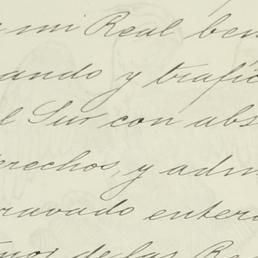 mi Real ben
ando y trafic
l Sur con abs
erechos, y adm
ravado entera
de las Re